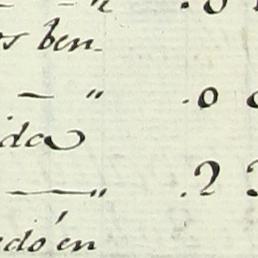 - " .0
os ben-
— " .0
ida
— " .2
edó en